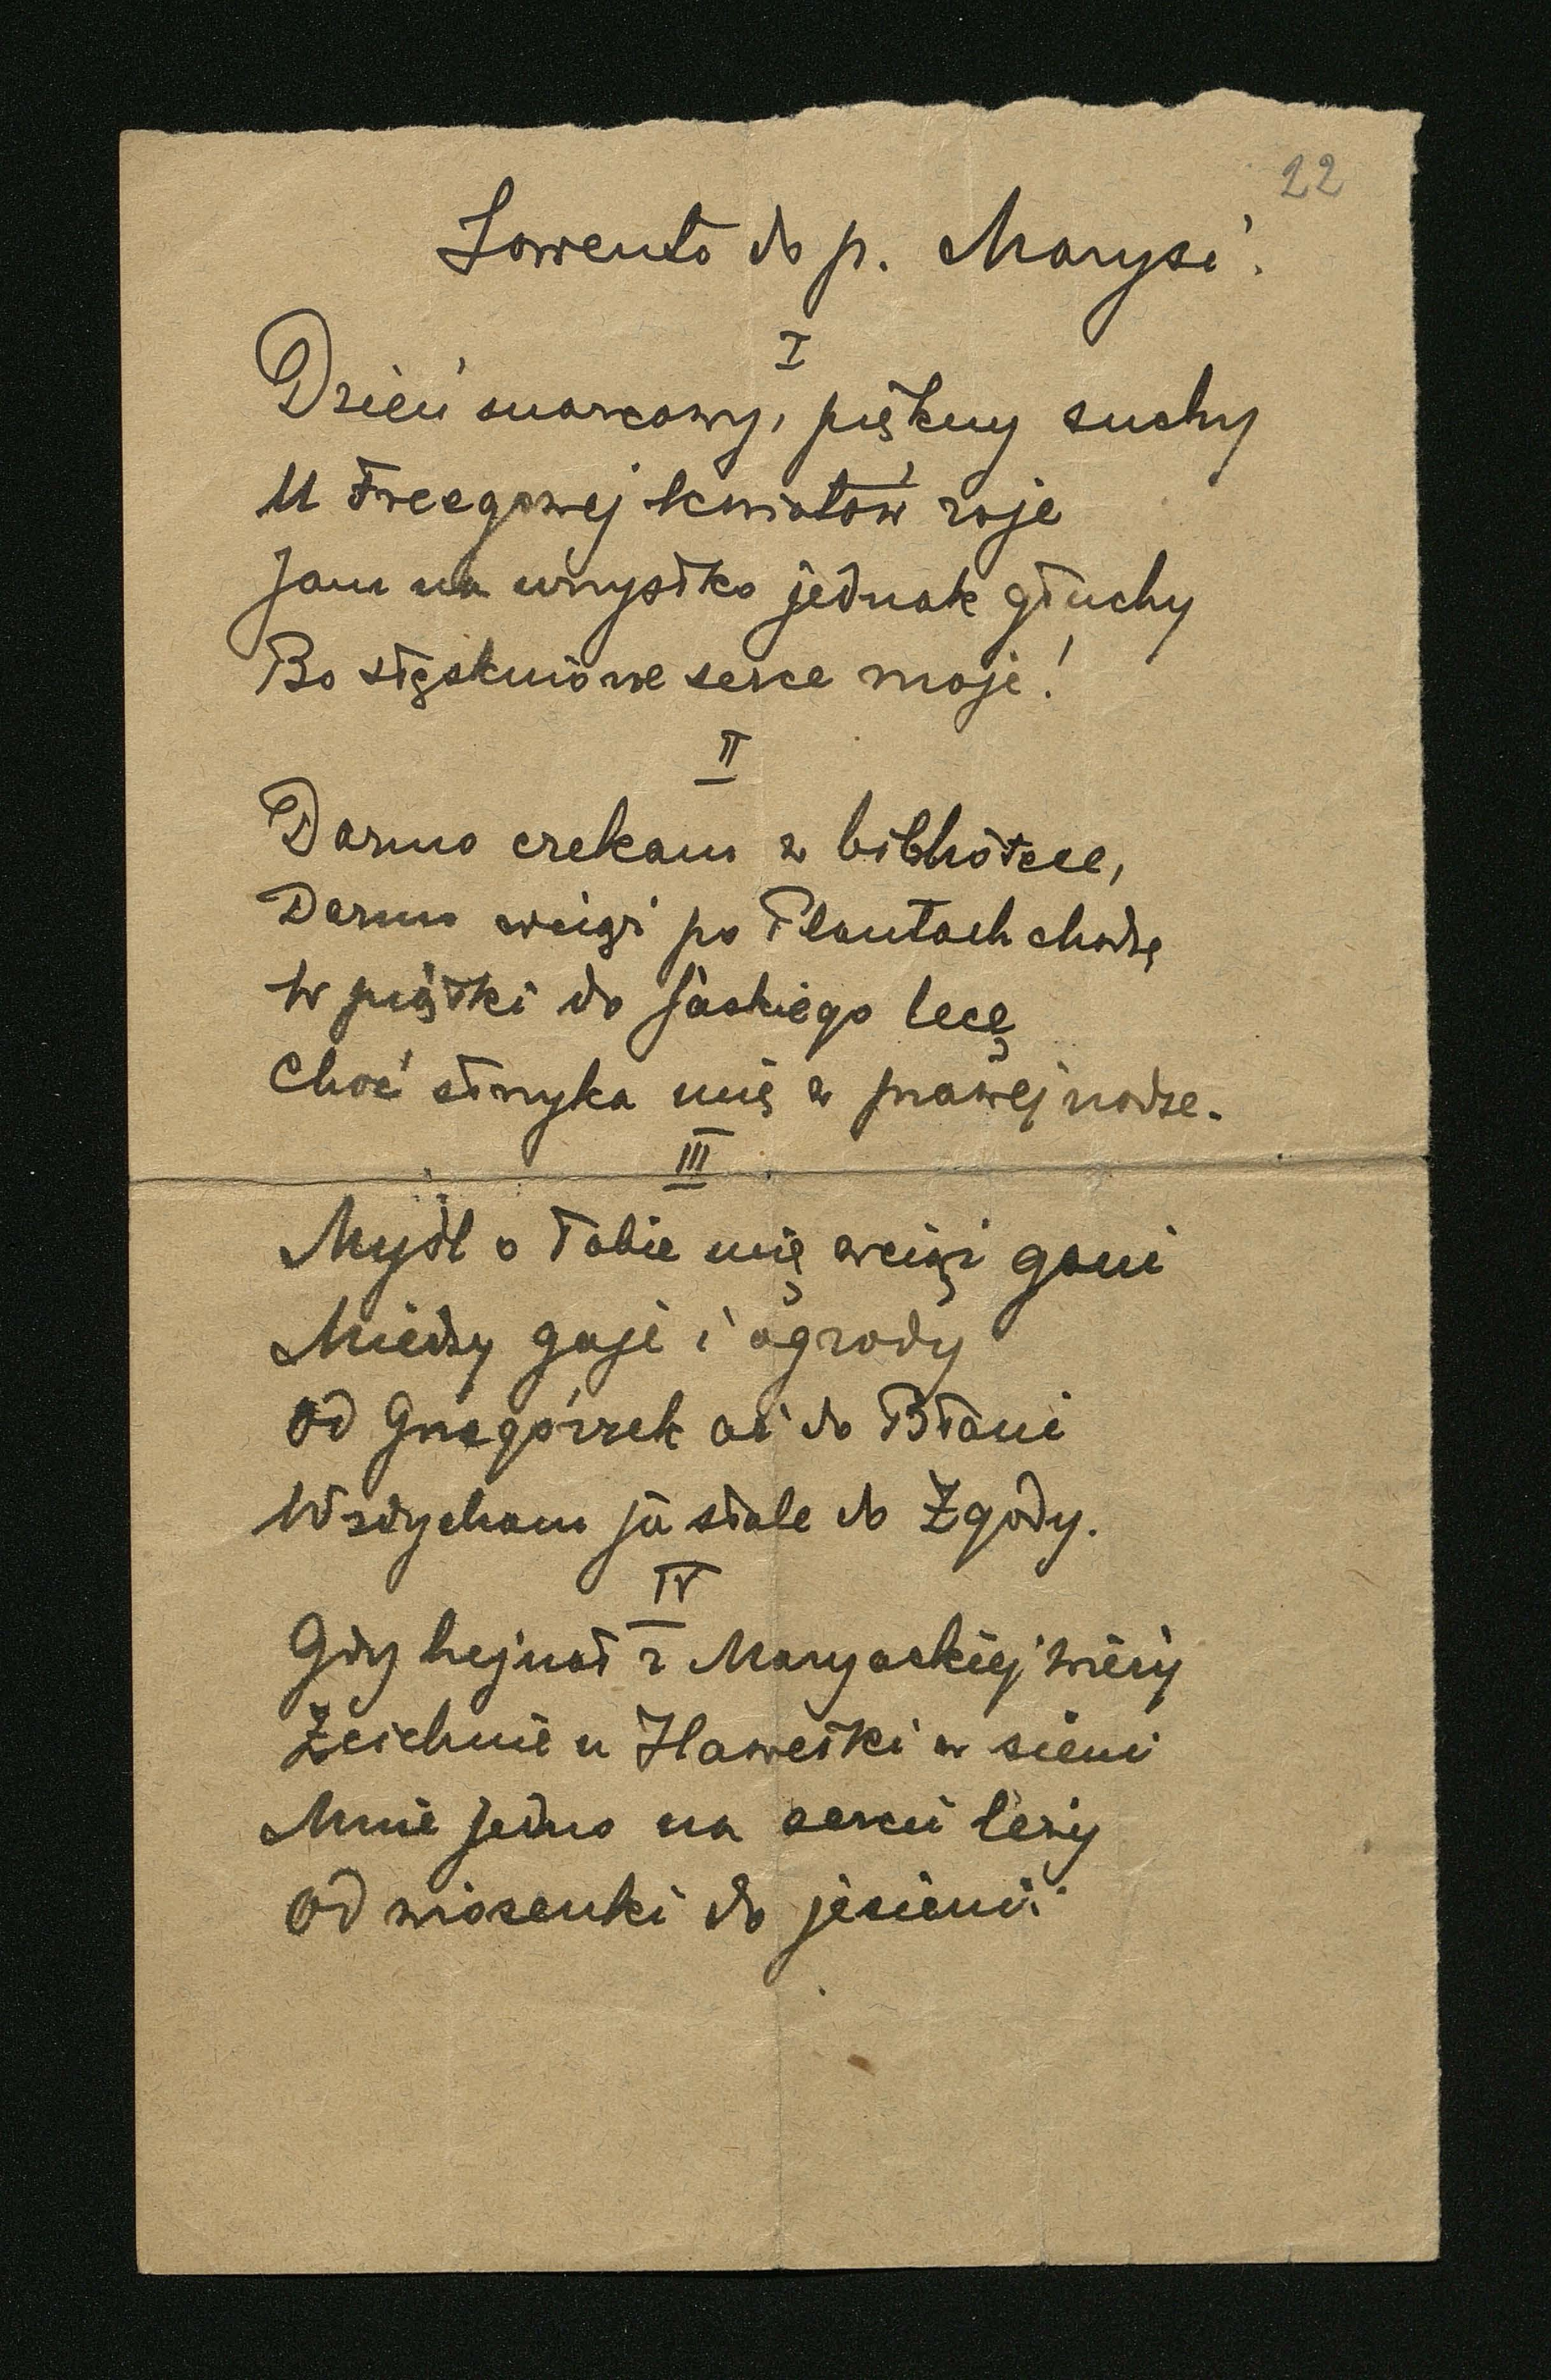 22
Lamento do p. Marysi.
I
Dzień marcowy, piękny suchy
U Freegowej kwiatów roje
Jam na wszystko jednak głuchy
Bo stęsknione serce moje!
II
Darmo czekam w bibliotece,
Darmo wciąż po Plantach chodzę
W piątki do Jaskiego lecę
Choć strzyka mię w prawej nodze.
III
Myśl o Tobie mię wciąż goni
Miedzy gaje i ogrody
Od Grzegórzek aż do Błoni
Wzdycham ja stale do Zgody.
IV
Gdy hejnał z Maryackiej wieży
Zcichnie u Hawełki w sieni
Mnie jedno na sercu leży
Od wiosenki do jesieni.